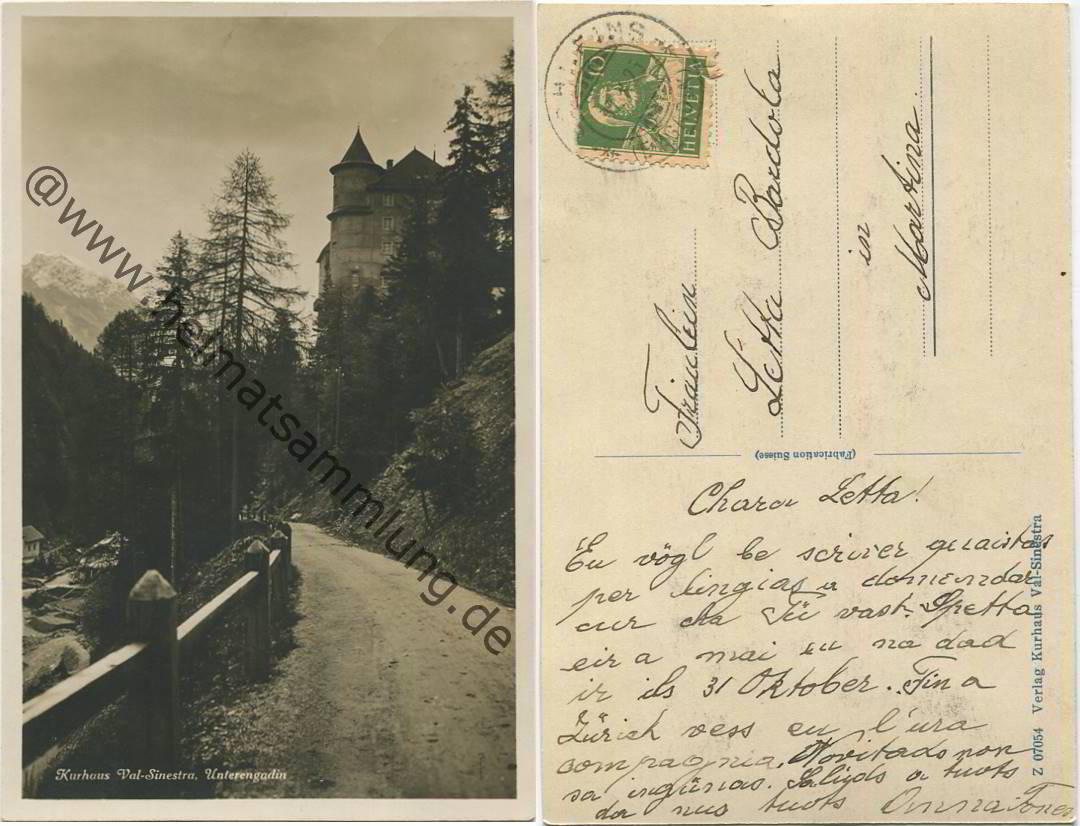 @www.heimatsammlung.de
Kurhaus Val-Sinestra, Unterengadin
10
HELVETIA
Fräulein
Letta Bardola
in
Martina.
(Fabrication Suisse)
Chara Letta!
Eu vögl be scriver quaistas
per lingias a domendar
cur cha Tü vast. Spetta
eir a mai eu na dad
ir ils 31 Oktober. Fin a
Zürich vess eu l'ura
compagnia. Novitads non
sa ingünas. Salüds a tuots
da nus tuots Anna
Z 07054 Verlag Kurhaus Val-Sinestra